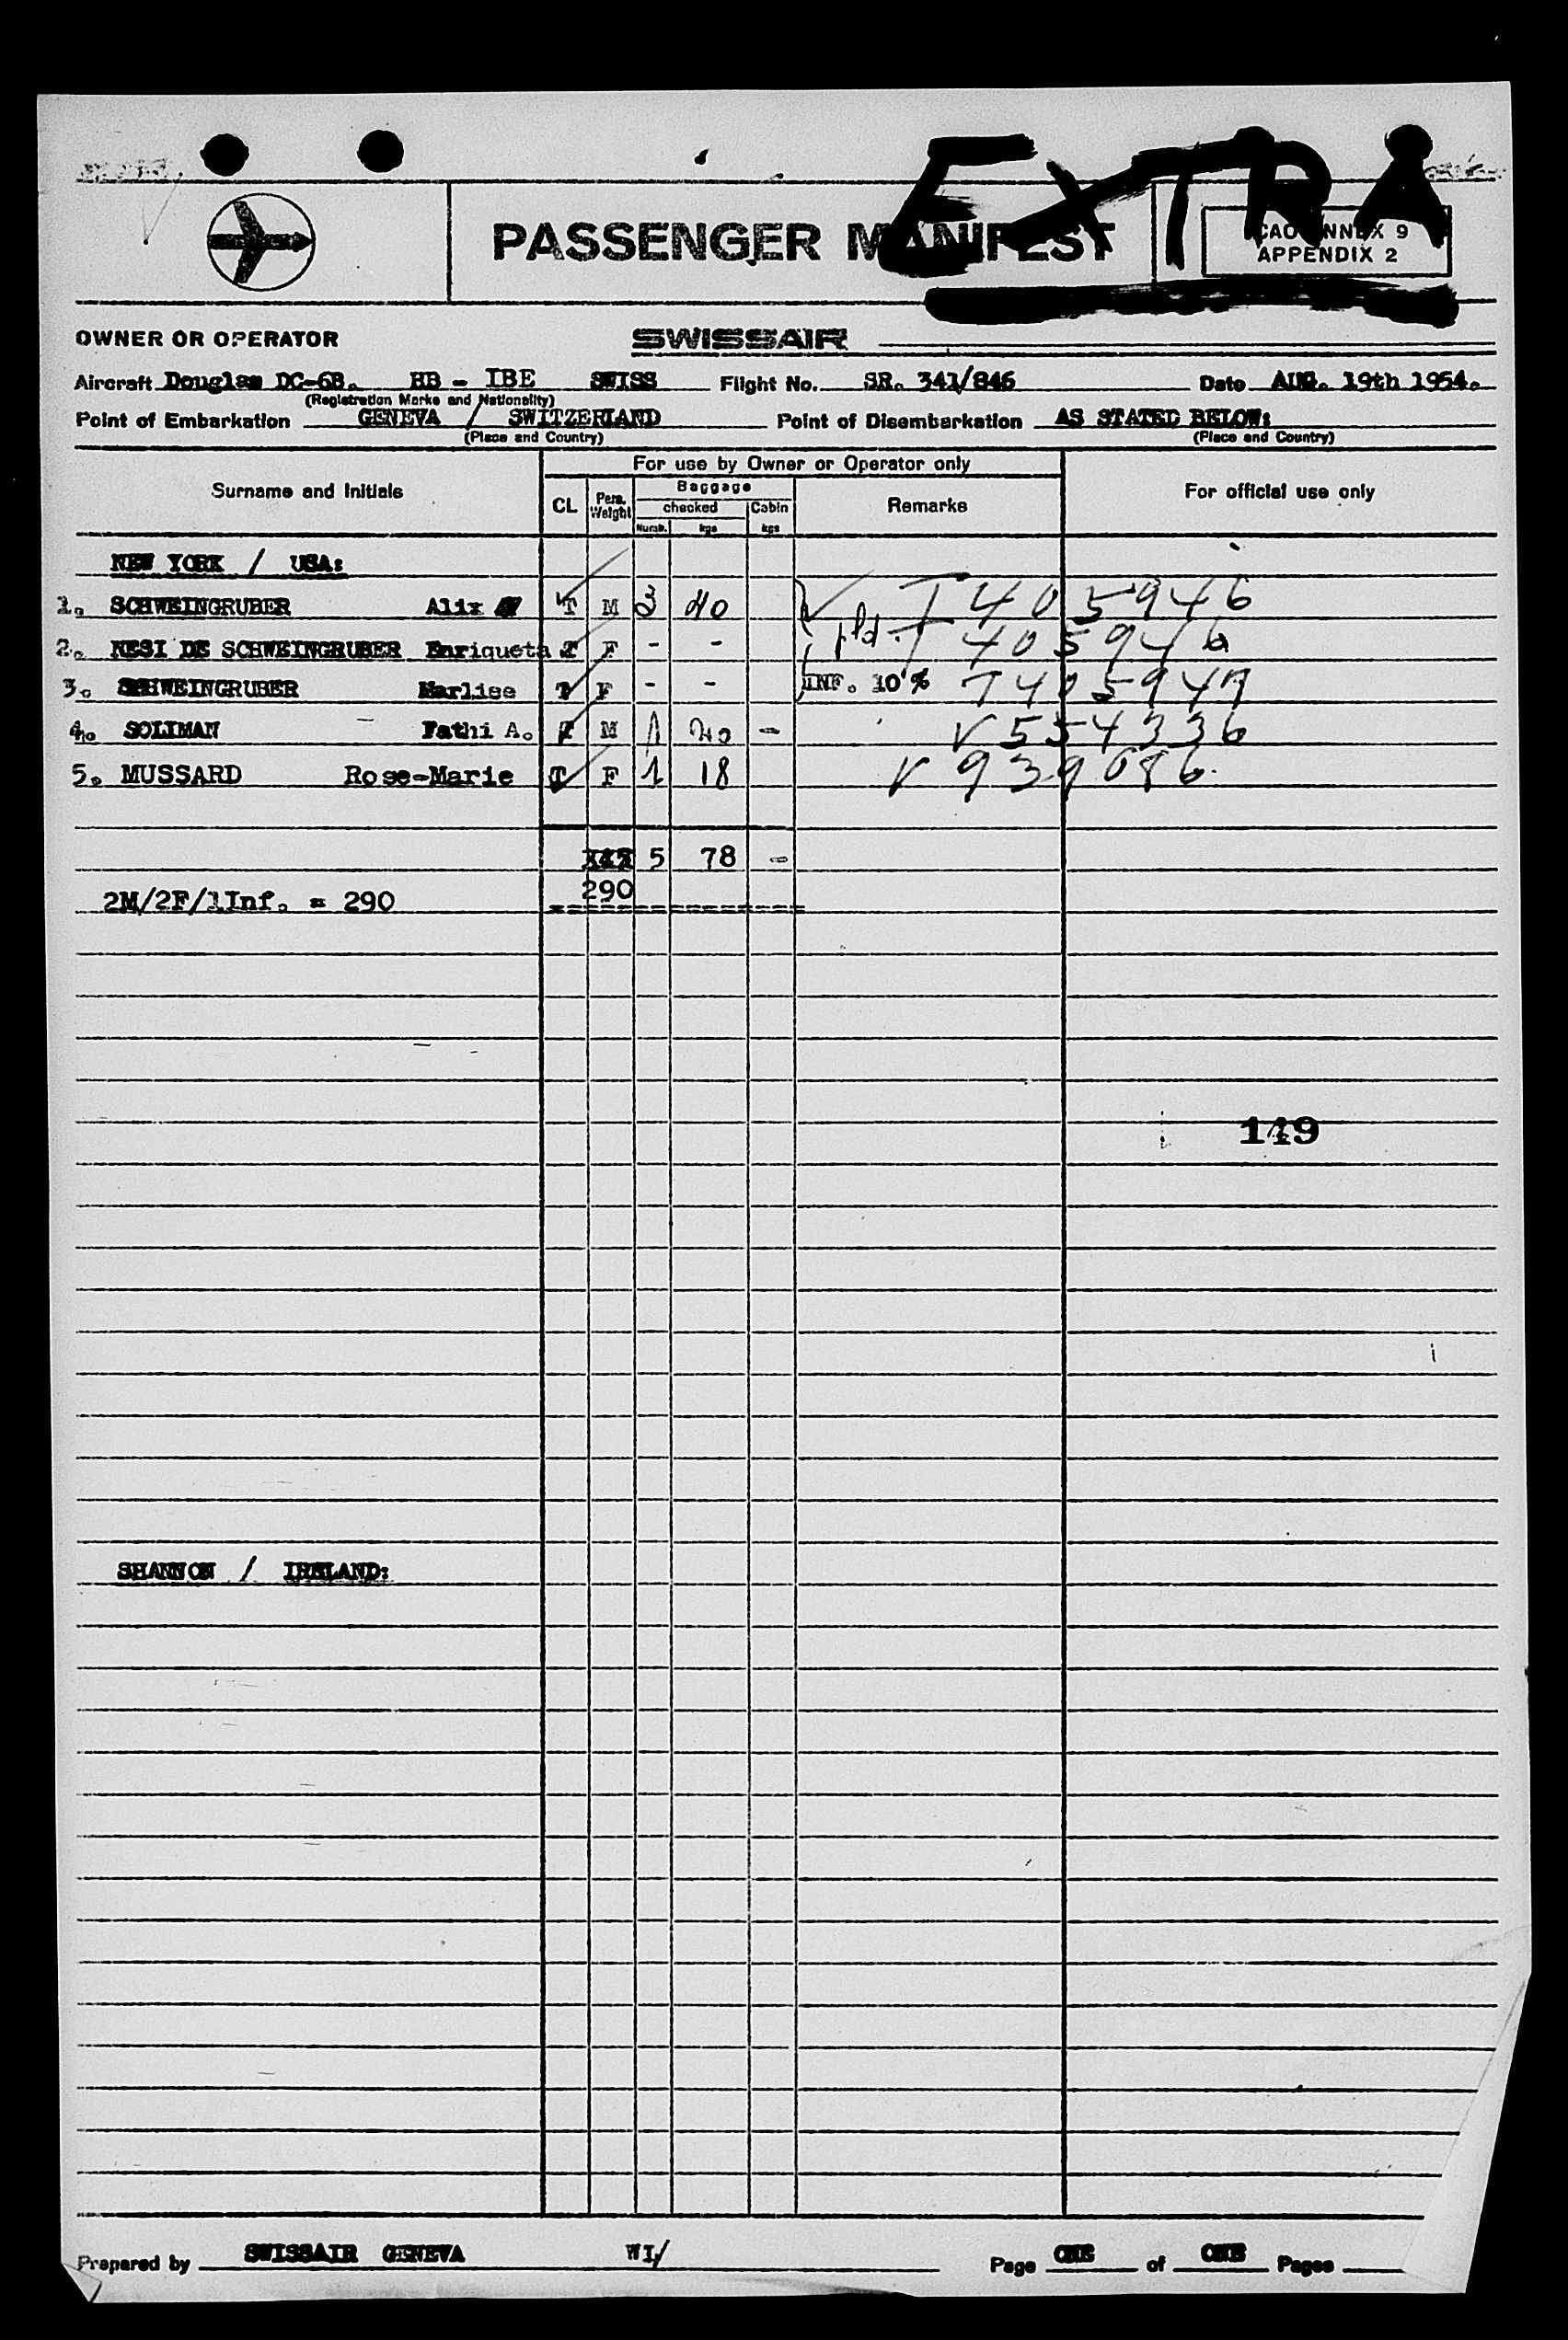 EXTRA
PASSENGER MANIFEST
ICAO ANNEX 9
APPENDIX 2
OWNER OR OPERATOR SWISSAIR
Aircraft Douglas DC-6B. HB - IBE SWISS Flight No. SR. 341/846 Date AUG. 19th 1954.
(Registration Marks and Nationality)
Point of Embarkation GENEVA / SWITZERLAND Point of Disembarkation AS STATED BELOW:
(Place and Country) (Place and Country)
For use by Owner or Operator only
Surname and Initials CL Pers. Weight Baggage Remarks For official use only
checked Cabin
Numb. kgs kgs
NEW YORK / USA:
1. SCHWEINGRUBER Alix T M 3 40 T 405946
2. NESI DE SCHWEINGRUBER Enriqueta T F - - pld. T 405946
3. SCHWEINGRUBER Marlise T F - - INF. 10 % T 405947
4. SOLIMAN Fathi A. T M 1 20 - V 554336
5. MUSSARD Rose-Marie T F 1 18 V 939086
5 78 -
290
2M/2F/1Inf. = 290
149
SHANNON / IRELAND:
Prepared by SWISSAIR GENEVA WI/ Page ONE of ONE Pages